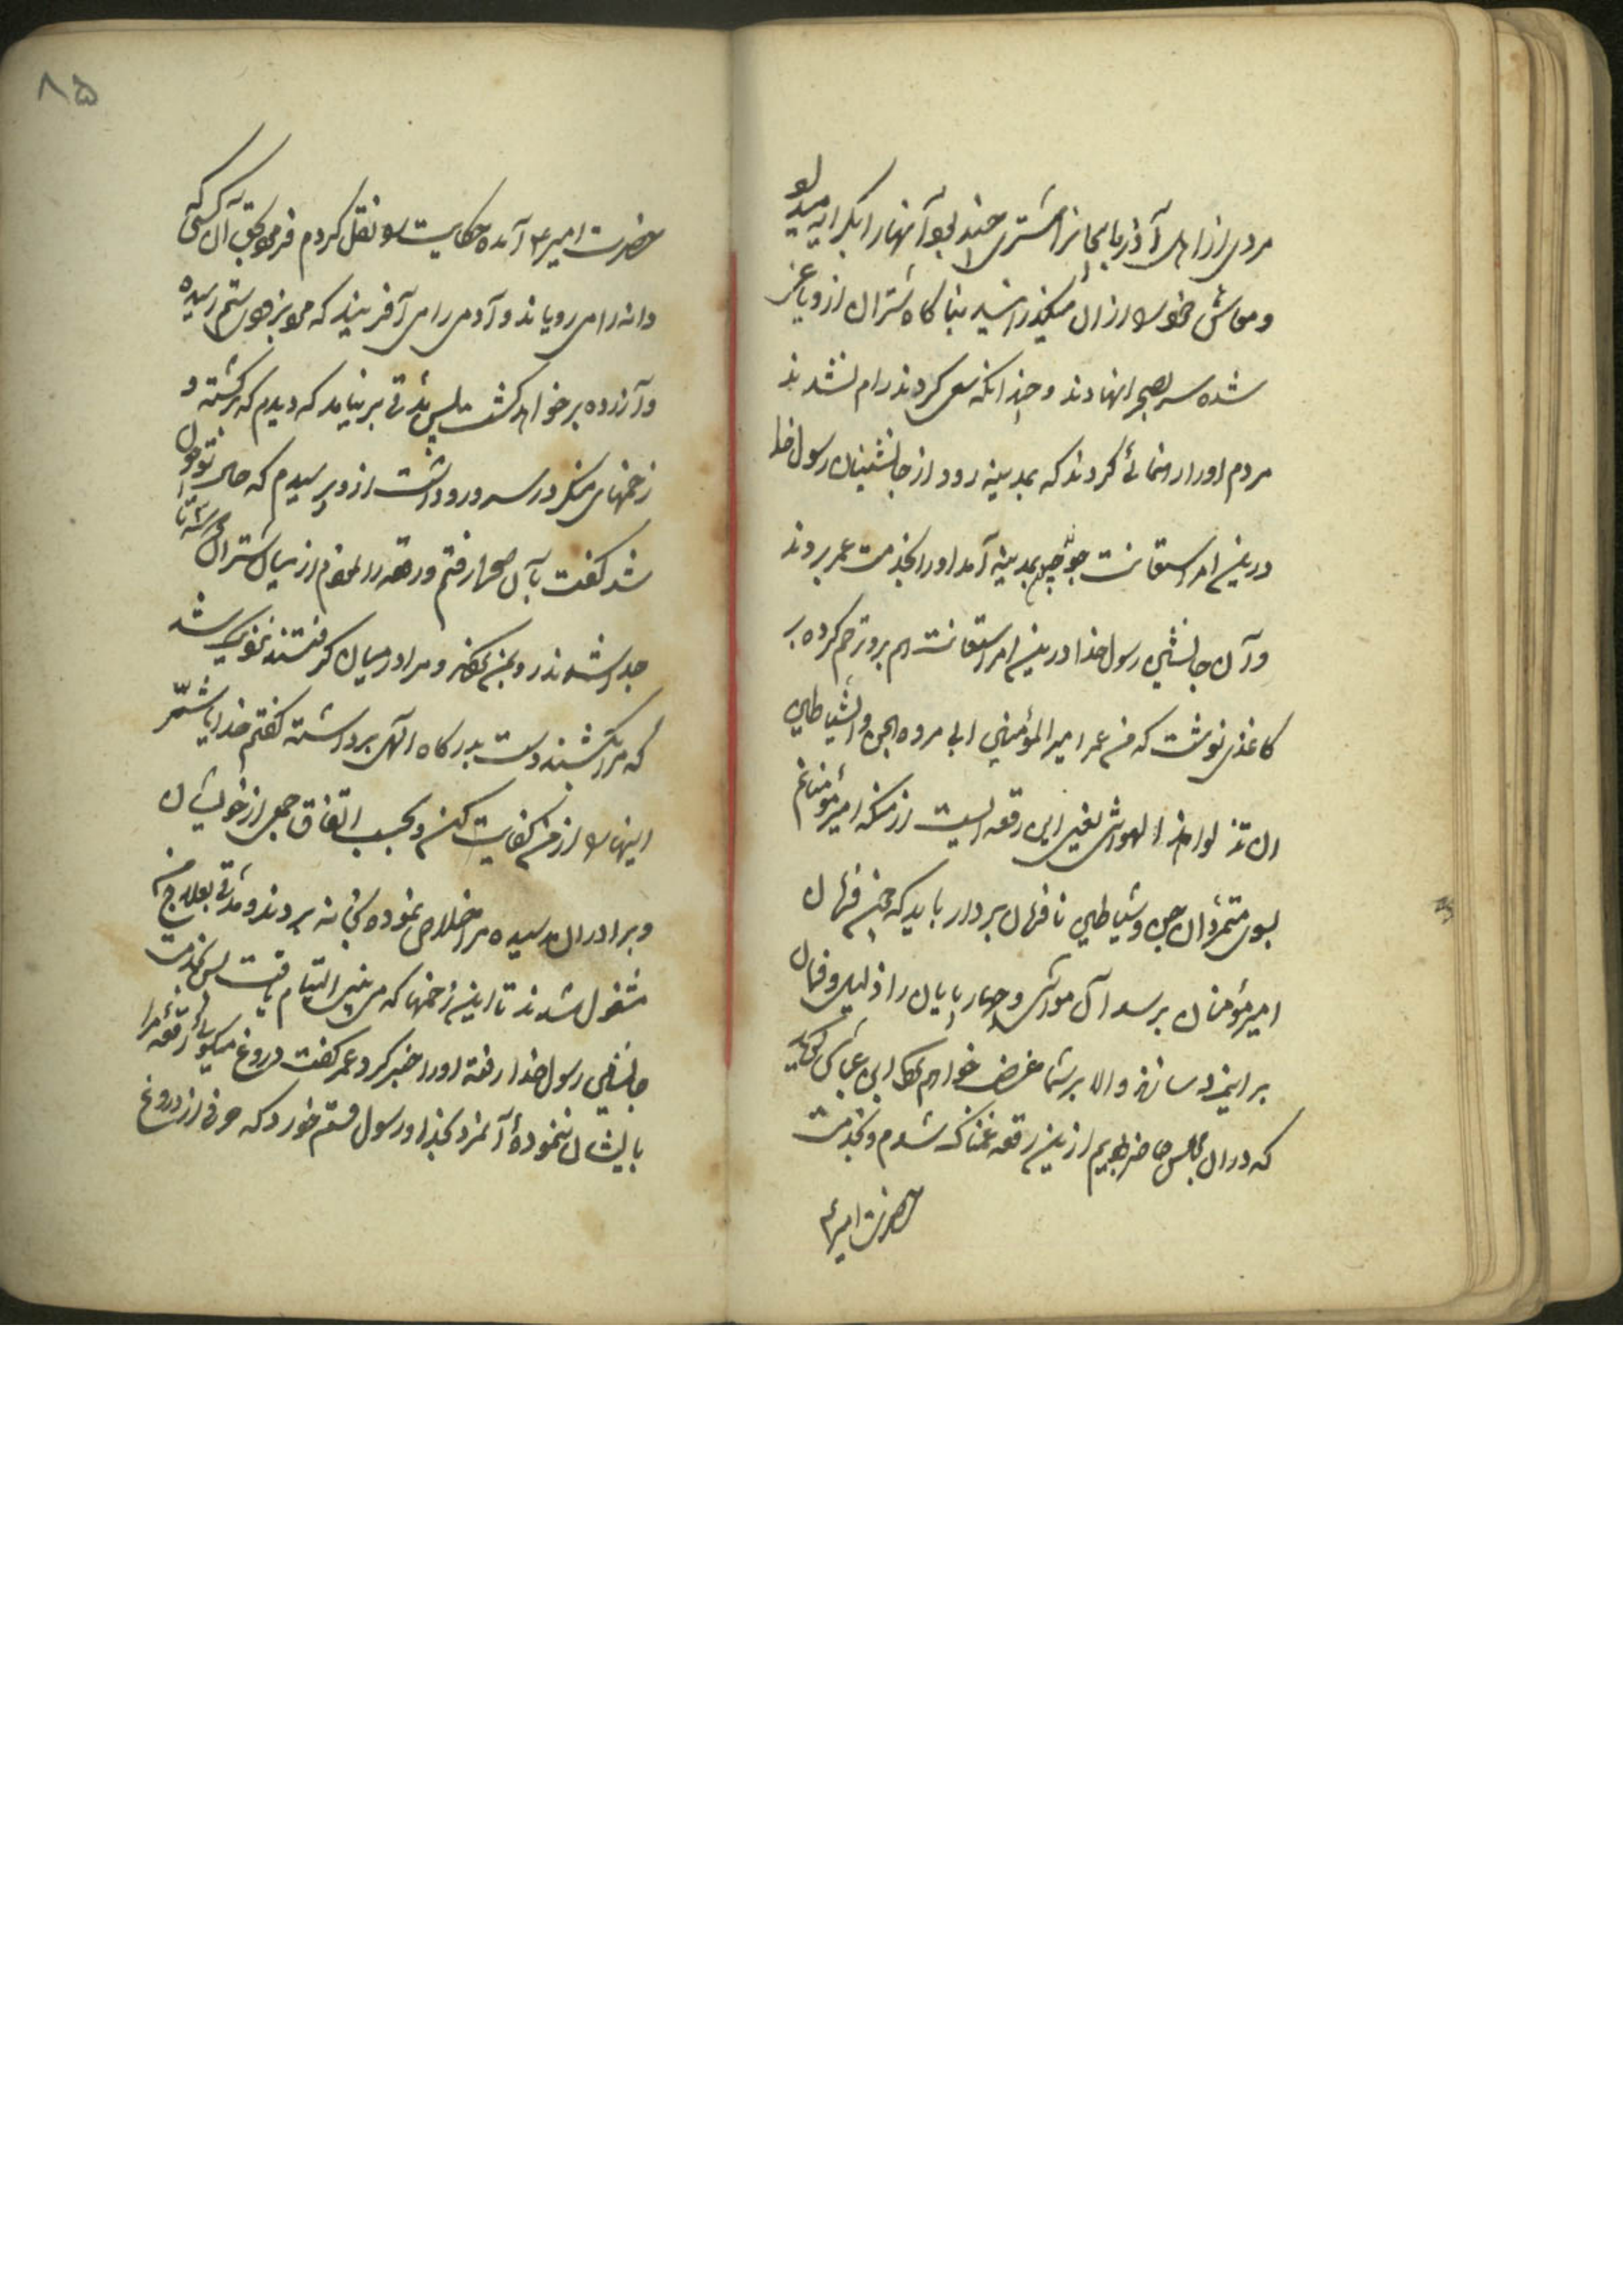 مردی از اهل آذربایجان را شتری چند بود آنها را بکرایه میداد
و معاش خود را از آن میگذرانید بناگاه شتران از و یاغی
شده سر بصحرا نهادند و چندانکه سعی کردند رام نشدند
مردم او را رهنمائی کردند که بمدینه رود از جانشینان رسول خدا
درین امر استعانت جوید چون بمدینه آمد او را بخدمت عمر بردند
و آن جانشین رسول خدا درین امر استعانت هم برو ترحم کرده بر
کاغذی نوشت که من عمر امیر المؤمنین الی مردة الجن و الشیاطین
ان تذللوا هذا المواشی یعنی این رقعه ایست از منکه امیر مؤمنانم
بسوی متمردان جن و شیاطین نافرمان بردار باید که چون فرمان
امیر مؤمنان برسد آن مواشی و چهارپایان را ذلیل و فرمان
بر این مرد سازند والا بر شما غضب خواهم کرد ابن عباس گوید
که در آن مجلس حاضر بودیم ازین رقعه غمناک شدم و بخدمت
حضرت امیر ع
۸۵
حضرت امیر ع آمده حکایت را نقل کردم فرمود بحق آن کسی که
دانه را می رویاند و آدمی را می آفریند که مرد ستم رسیده
و آزرده برخواهد گشت پس مدتی برنیامد که دیدم که برگشته و
زخمهای منکر در سر و رو داشت ازو پرسیدم که حال تو چون
شد گفت بآن صحرا رفتم و رقعه را انداختم از میان شتران سه تا
جدا شدند رو بمن کردند و مرا در میان گرفتند نزدیک شد
که مرا بکشند دست بدرگاه الهی برداشته گفتم خدایا شر
اینها را از من کفایت کن و بحسب اتفاق جمعی از خویشان
و برادران رسیده مرا خلاص نموده بخانه بردند و مدتی بعلاج من
مشغول شدند تا این زخمها که می بینی التیام یافت پس بخدمت
جانشین رسول خدا رفته او را خبر کرد عمر گفت دروغ میگوئی رقعه مرا
بایشان ننموده آن مرد بخدا و رسول قسم خورد که حرفی از دروغ